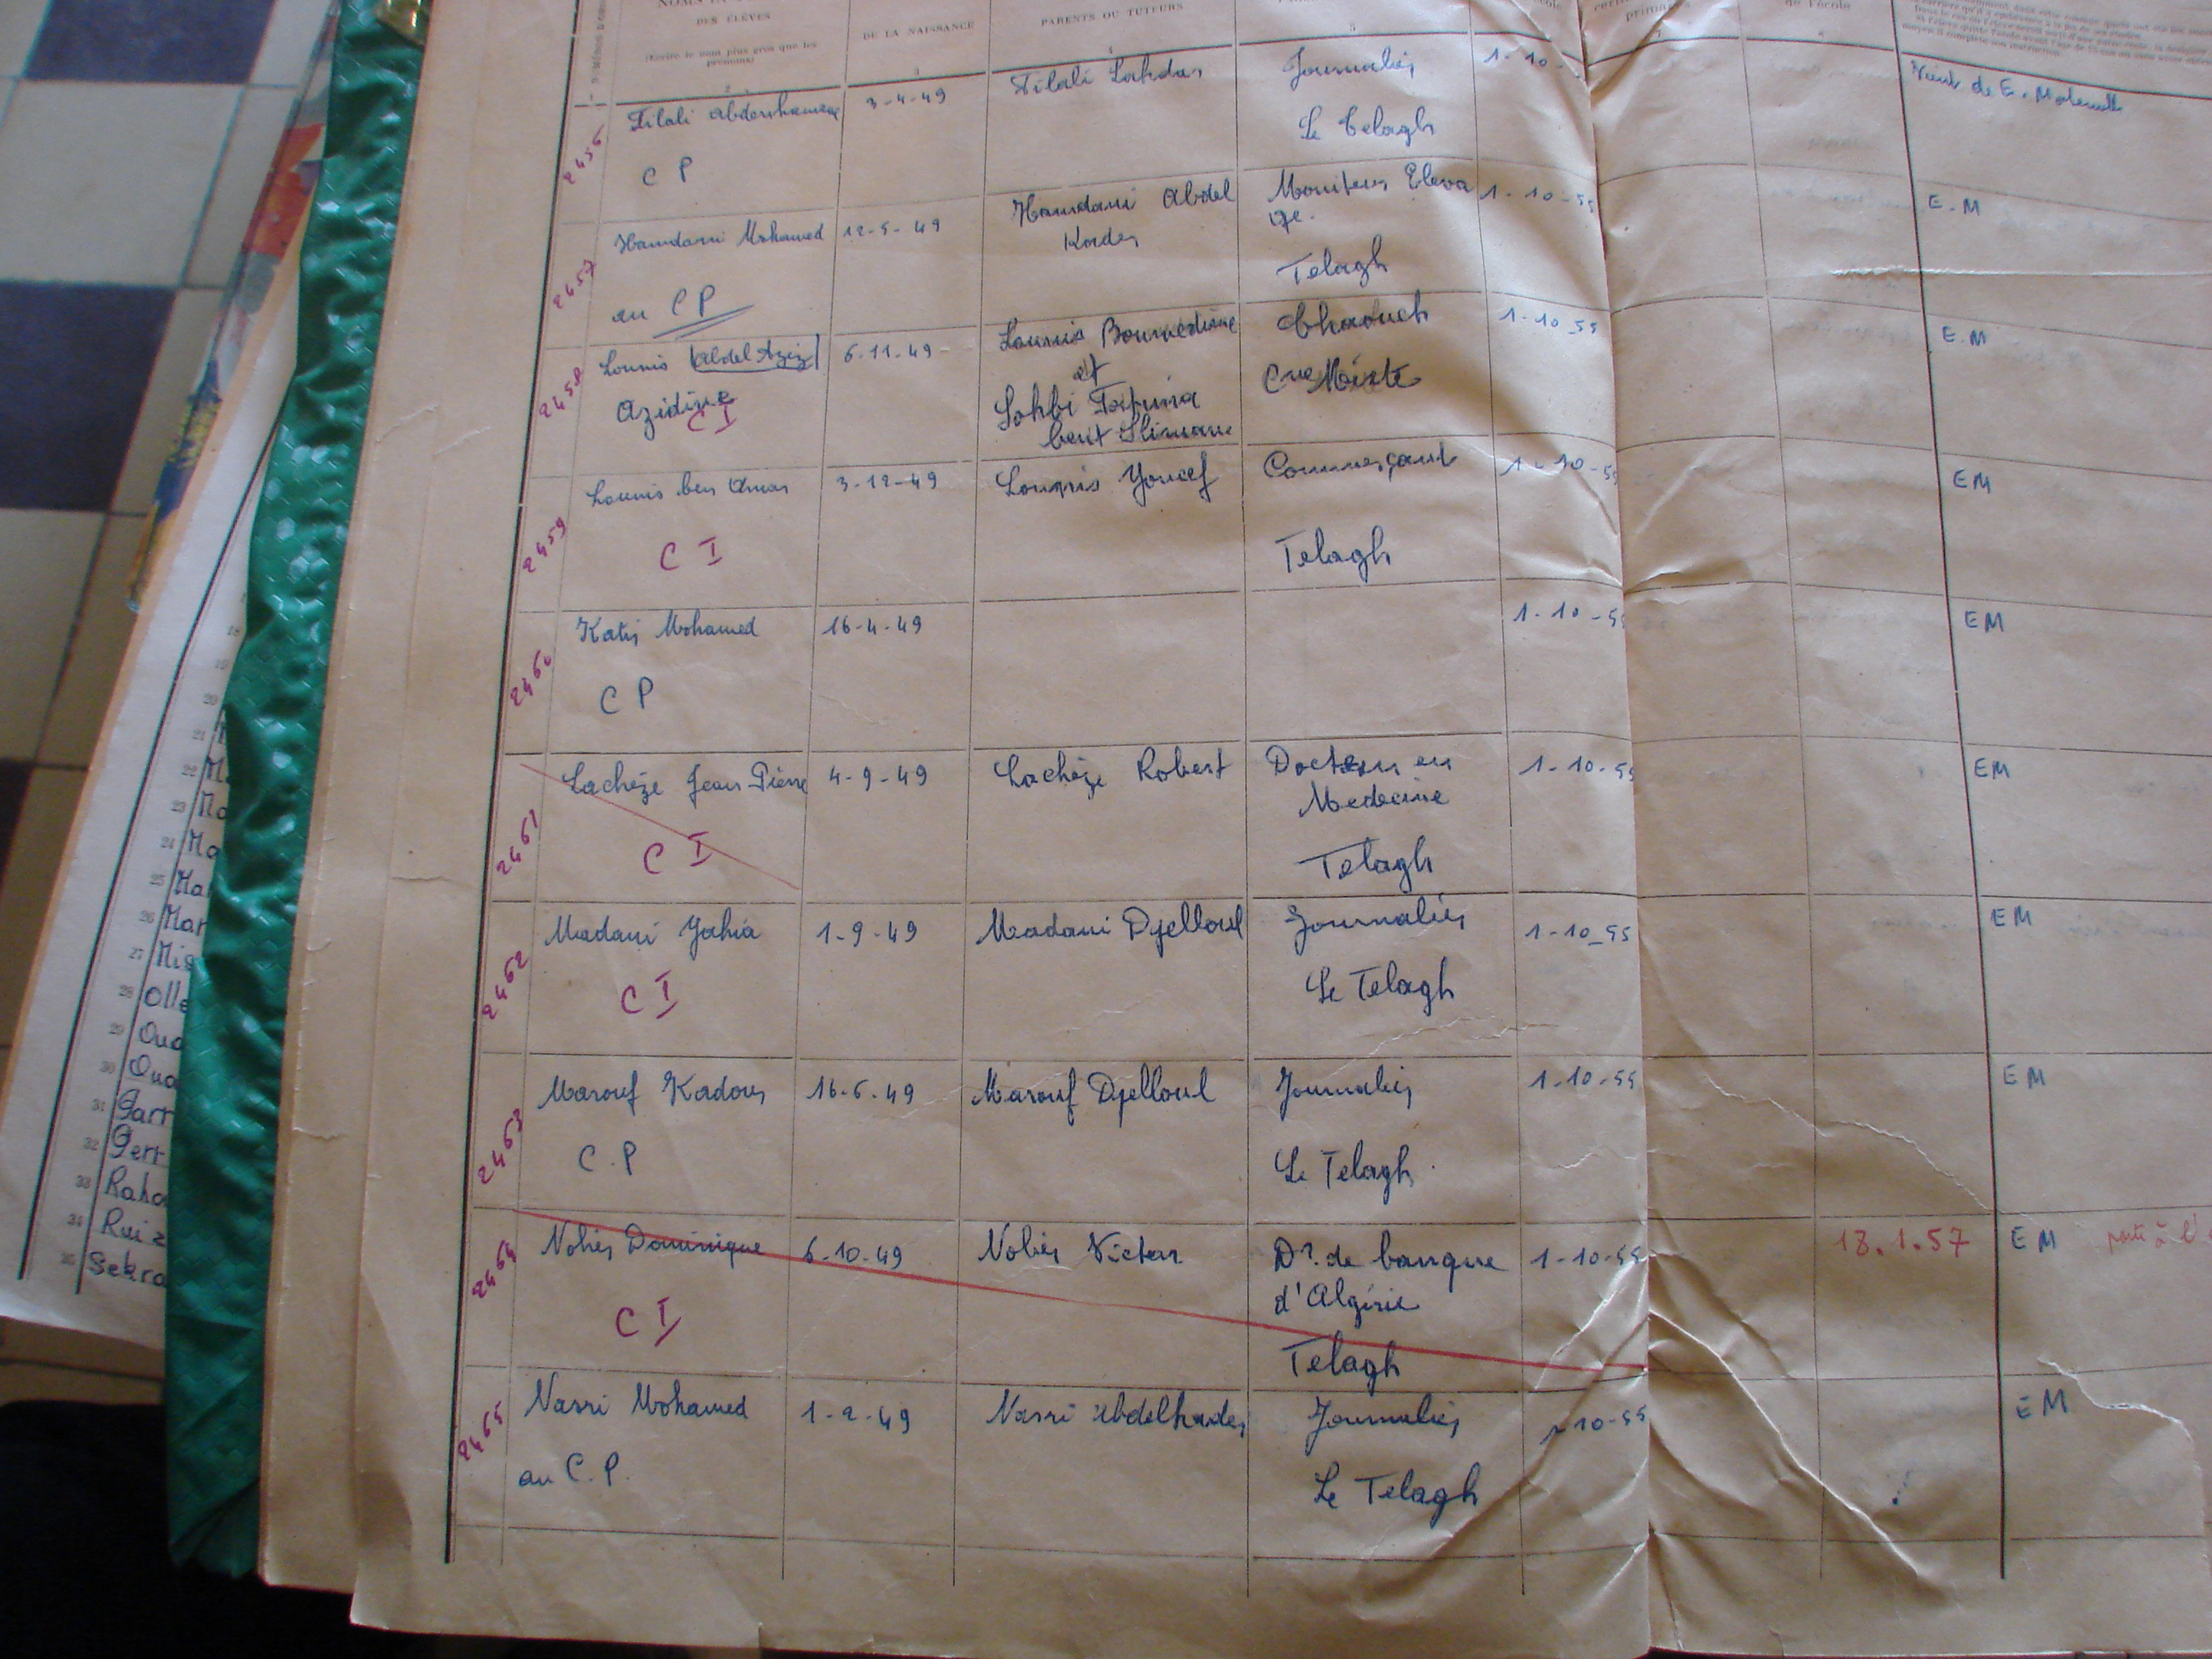 DES ÉLÈVES
DE LA NAISSANCE
PARENTS OU TUTEURS
(Écrire le nom plus gros que les prénoms)
2456 Filali Abderrhamane 3-4-49 Filali Lahdar Journalier 1-10- Vient de E. Maternelle
C P Le Telagh
2457 Hamdani Mohamed 12-5-49 Hamdani Abdel Moniteur Eleva 1-10-55 E.M
Kader ge.
au C P Telagh
2458 Lounis (Abdel Aziz) 6-11-49 Lounis Boumediène Chaouch 1-10-55 E.M
et
Azidine Sahbi Fatima Cne Mixte
C I bent Slimane
2459 Lounis ben Amar 3-12-49 Lounis Youcef Commerçant 1-10-55 EM
C I Telagh
2460 Mohamed 16-4-49 1-10-55 EM
C P
2461 Lachèze Jean Pierre 4-9-49 Lachèze Robert Docteur en 1-10-55 EM
Medecine
C I Telagh
2462 Madani Yahia 1-9-49 Madani Djelloul Journalier 1-10-55 EM
C I Le Telagh
2463 Marouf Kadour 16-6-49 Marouf Djelloul Journalier 1-10-55 EM
C.P Le Telagh.
2464 Dominique 6-10-49 Victor Dr. de banque 1-10-55 18.1.57 EM parti à l'
d'Algérie
C I Telagh
2465 Nasri Mohamed 1-2-49 Nasri Abdelkader Journalier 1-10-55 EM
au C.P. Le Telagh
18
19
20
21
22 Ma
23 Mo
24 Ma
25 Mar
26 Mar
27 Mig
28 Olle
29 Oua
30 Oua
31 Parr
32 Perr
33 Raho
34 Ruiz
35 Sekra